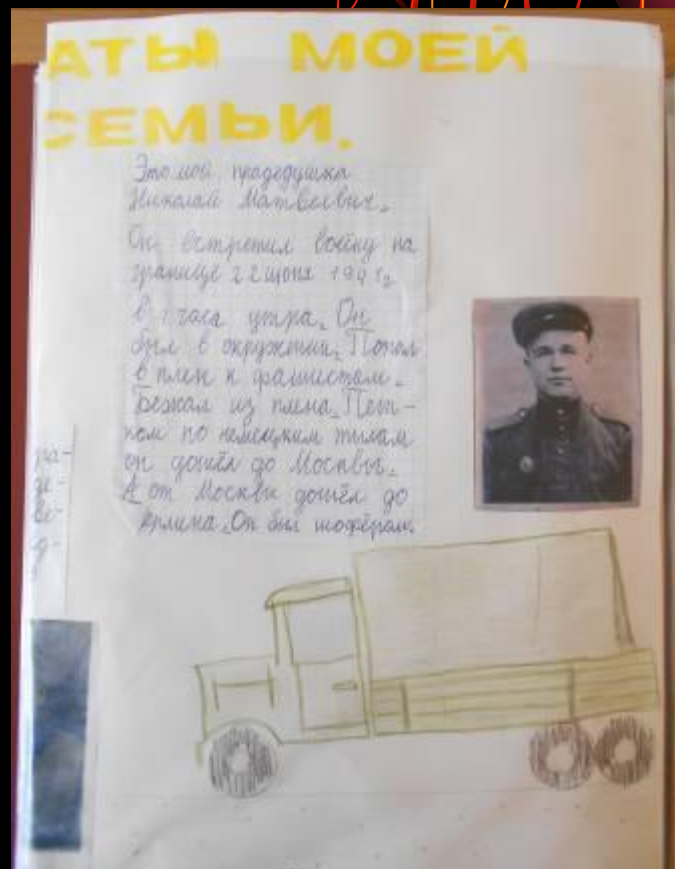 АТЫ МОЕЙ
СЕМЬИ.
Это мой прадедушка
Николай Матвеевич.
Он встретил войну на
границе 22 июня 1941г
в часа утра. Он
был в окружении. Попал
в плен к фашистам.
Бежал из плена. Пеш-
ком по немецким тылам
он дошёл до Москвы.
А от Москвы дошёл до
ерлина. Он был шофёром.